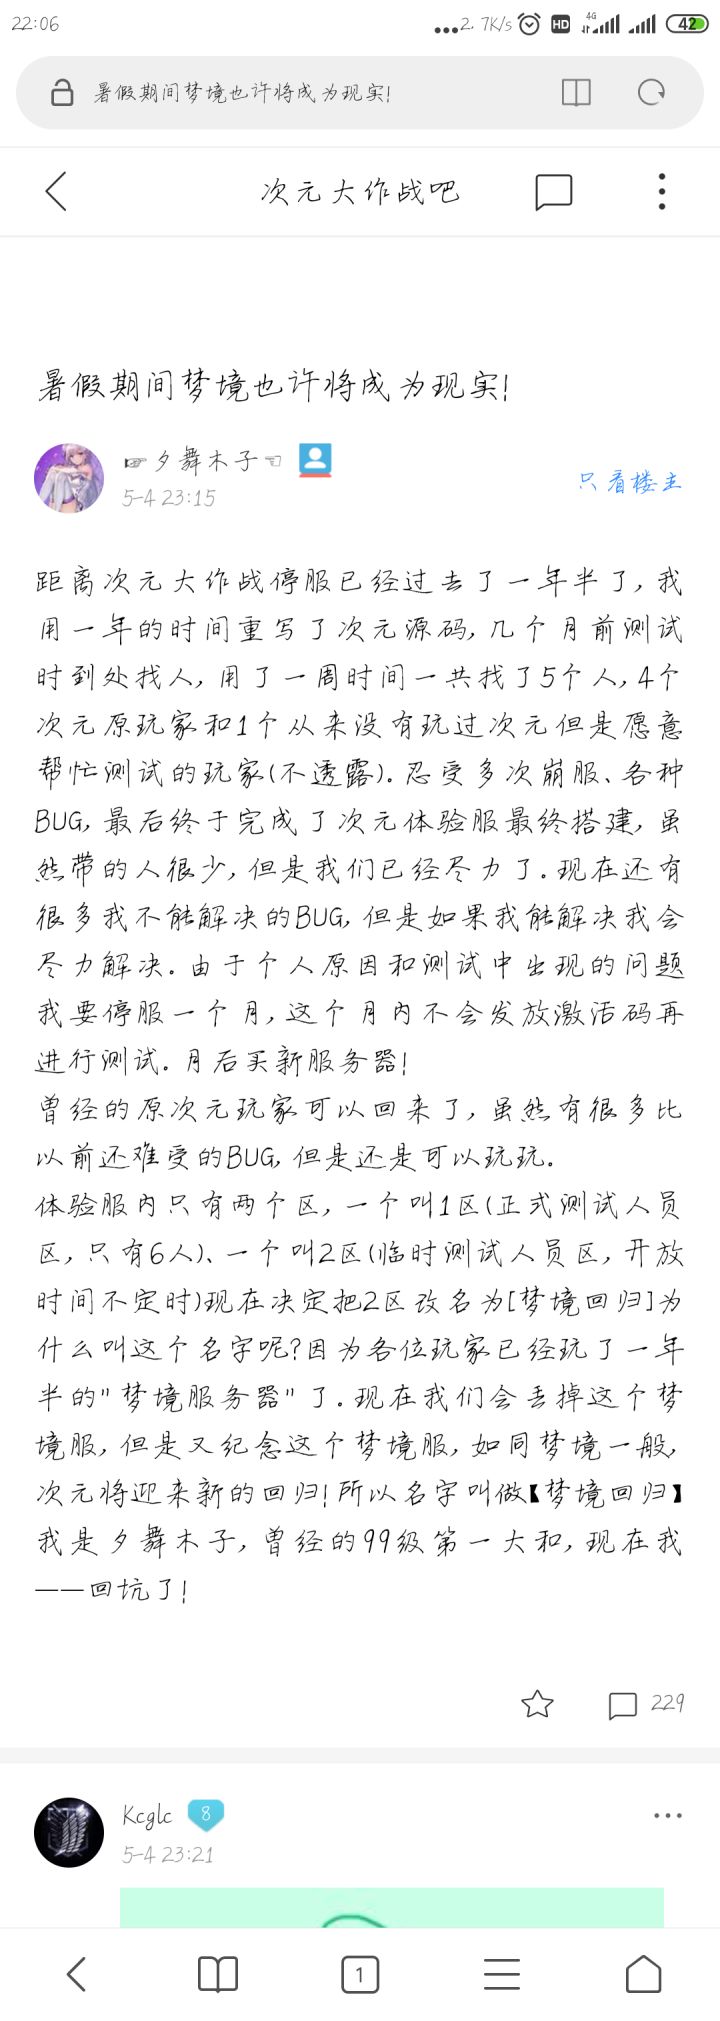 22:06
...2.7K/s HD 4G 42
暑假期间梦境也许将成为现实!
次元大作战吧
暑假期间梦境也许将成为现实!
☞夕舞木子☜
5-4 23:15
只看楼主
距离次元大作战停服已经过去了一年半了, 我
用一年的时间重写了次元源码, 几个月前测试
时到处找人, 用了一周时间一共找了5个人, 4个
次元原玩家和1个从来没有玩过次元但是愿意
帮忙测试的玩家(不透露). 忍受多次崩服、各种
BUG, 最后终于完成了次元体验服最终搭建, 虽
然带的人很少, 但是我们已经尽力了. 现在还有
很多我不能解决的BUG, 但是如果我能解决我会
尽力解决. 由于个人原因和测试中出现的问题
我要停服一个月, 这个月内不会发放激活码再
进行测试. 月后买新服务器!
曾经的原次元玩家可以回来了, 虽然有很多比
以前还难受的BUG, 但是还是可以玩玩.
体验服内只有两个区, 一个叫1区(正式测试人员
区, 只有6人)、一个叫2区(临时测试人员区, 开放
时间不定时)现在决定把2区改名为[梦境回归]为
什么叫这个名字呢?因为各位玩家已经玩了一年
半的"梦境服务器"了. 现在我们会丢掉这个梦
境服, 但是又纪念这个梦境服, 如同梦境一般,
次元将迎来新的回归!所以名字叫做【梦境回归】
我是夕舞木子, 曾经的99级第一大和, 现在我
——回坑了!
229
Kcglc 8
5-4 23:21
1